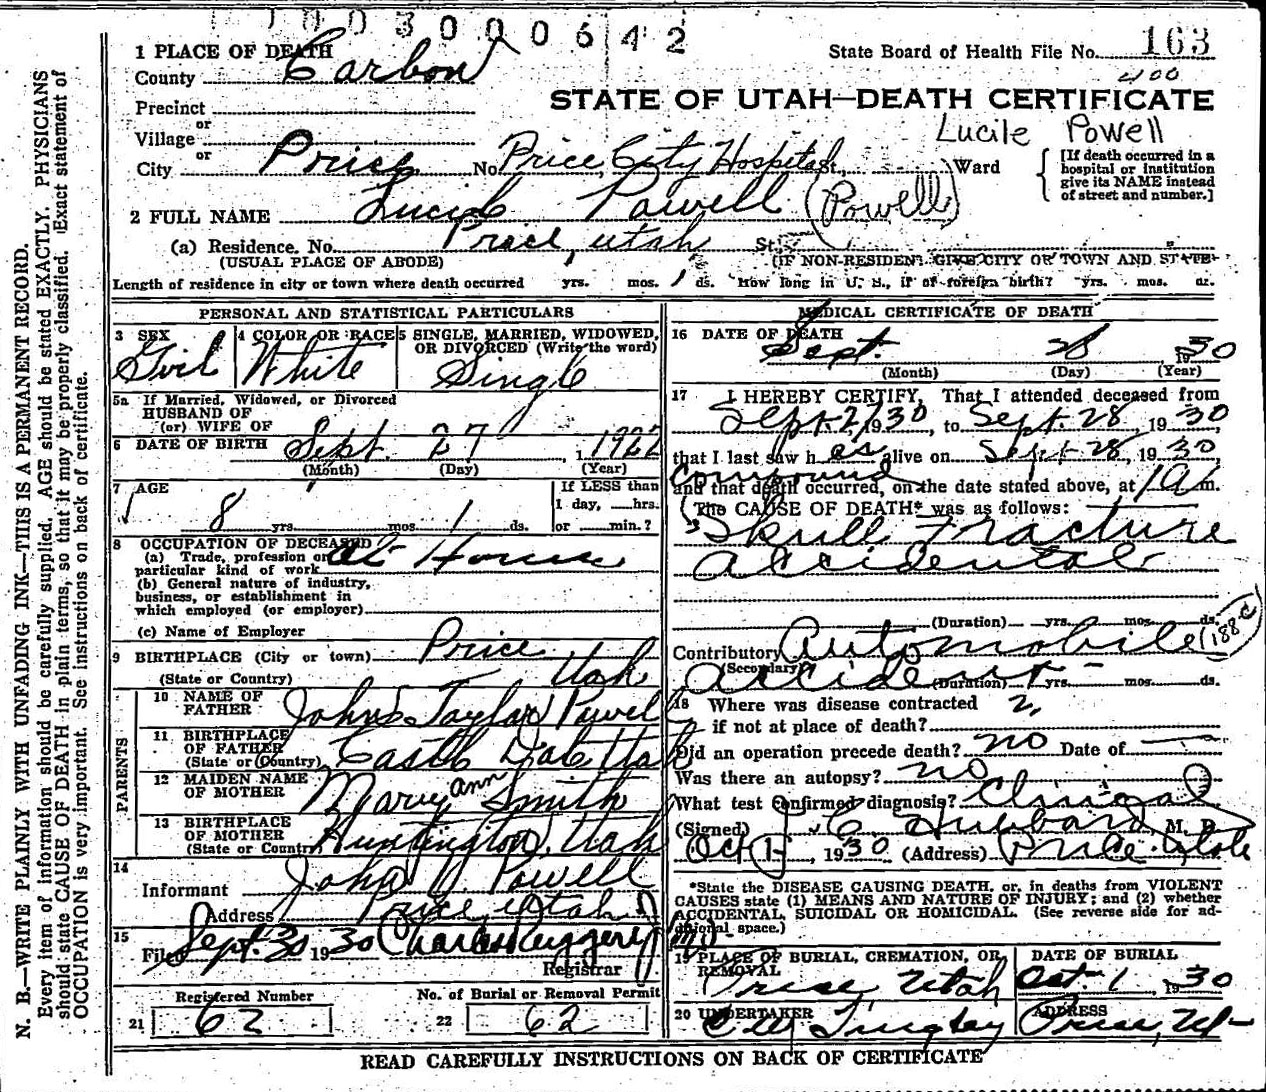 1003000642
1 PLACE OF DEATH
County Carbon
State Board of Health File No. 163
400
Precinct
or
Village
or
City Price
STATE OF UTAH—DEATH CERTIFICATE
Lucile Powell
No. Price City Hospital St., Ward
[If death occurred in a hospital or institution give its NAME instead of street and number.]
2 FULL NAME Lucile Powell (Powell)
(a) Residence, No. Price, Utah St.
(USUAL PLACE OF ABODE)
(IF NON-RESIDENT GIVE CITY OR TOWN AND STATE)
Length of residence in city or town where death occurred yrs. mos. 1 ds. How long in U. S., if of foreign birth? yrs. mos. ds.
PERSONAL AND STATISTICAL PARTICULARS
3 SEX Girl
4 COLOR OR RACE White
5 SINGLE, MARRIED, WIDOWED, OR DIVORCED (Write the word) Single
5a If Married, Widowed, or Divorced
HUSBAND OF
(or) WIFE OF
6 DATE OF BIRTH Sept. 27, 1922
(Month) (Day) (Year)
7 AGE 8 yrs. mos. 1 ds.
If LESS than
1 day, hrs.
or min.?
8 OCCUPATION OF DECEASED
(a) Trade, profession or
particular kind of work At Home
(b) General nature of industry,
business, or establishment in
which employed (or employer)
(c) Name of Employer
9 BIRTHPLACE (City or town) Price
(State or Country) Utah
PARENTS
10 NAME OF FATHER John Taylor Powell
11 BIRTHPLACE OF FATHER (State or Country) Castle Dale Utah
12 MAIDEN NAME OF MOTHER Mary ann Smith
13 BIRTHPLACE OF MOTHER (State or Country) Huntington, Utah
14
Informant John Powell
Address Price, Utah
15
Filed Sept. 30 1930
Registrar
Registered Number
21 62
No. of Burial or Removal Permit
22 62
MEDICAL CERTIFICATE OF DEATH
16 DATE OF DEATH
Sept. 28 1930
(Month) (Day) (Year)
17 I HEREBY CERTIFY, That I attended deceased from
Sept. 1930, to Sept. 28, 1930
that I last saw h alive on Sept 28, 1930
and that death occurred, on the date stated above, at 1 a m.
The CAUSE OF DEATH* was as follows:
Compound
Skull Fracture
Accidental
(Duration) yrs. mos. ds.
Contributory Automobile (188c)
(Secondary)
accident
(Duration) yrs. mos. ds.
18 Where was disease contracted
if not at place of death?
Did an operation precede death? no Date of
Was there an autopsy? no
What test confirmed diagnosis? Clinical
(Signed) J. C. Hubbard, M. D.
Oct 1, 1930 (Address) Price Utah
*State the DISEASE CAUSING DEATH, or, in deaths from VIOLENT
CAUSES state (1) MEANS AND NATURE OF INJURY; and (2) whether
ACCIDENTAL, SUICIDAL OR HOMICIDAL. (See reverse side for additional space.)
19 PLACE OF BURIAL, CREMATION, OR REMOVAL
Price, Utah
DATE OF BURIAL
Oct. 1, 1930
20 UNDERTAKER
ADDRESS
Price, Ut
READ CAREFULLY INSTRUCTIONS ON BACK OF CERTIFICATE
N. B.—WRITE PLAINLY WITH UNFADING INK—THIS IS A PERMANENT RECORD.
Every item of information should be carefully supplied. AGE should be stated EXACTLY. PHYSICIANS
should state CAUSE OF DEATH in plain terms, so that it may be properly classified. Exact statement of
OCCUPATION is very important. See instructions on back of certificate.